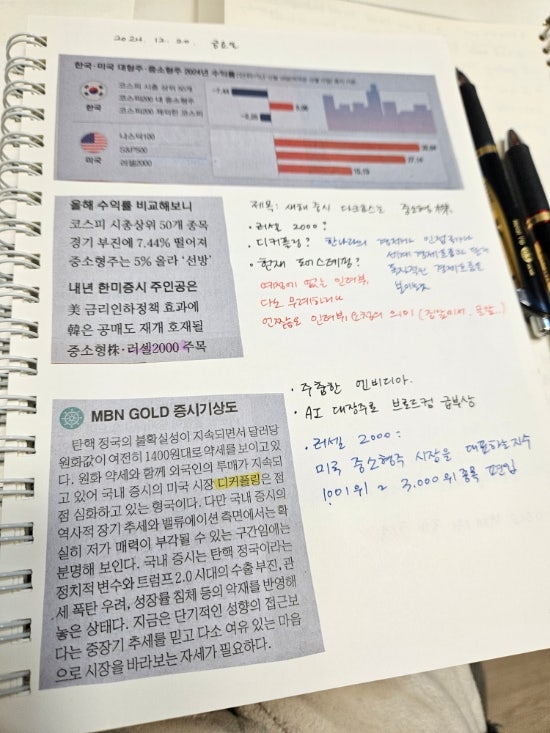 2024. 12. 20. 금요일
한국·미국 대형주·중소형주 2024년 수익률
한국
코스피 시총 상위 50개
코스피200 내 중소형주
코스피200 제외한 코스피
-7.44
미국
나스닥100
S&P500
러셀2000
올해 수익률 비교해보니
코스피 시총상위 50개 종목
경기 부진에 7.44% 떨어져
중소형주는 5% 올라 '선방'
내년 한미증시 주인공은
美 금리인하정책 효과에
韓은 공매도 재개 호재될
중소형株·러셀2000 주목
제목: 새해 증시 다크호스는 중소형株.
· 러셀 2000?
· 디커플링? 한나라의 경제가 인접국가나
세계 경제흐름과 달리
독자적인 경제흐름을
보이는것
· 현재 포스레밍?
예정에 없는 인터뷰,
다소 무례하거나
언짢음
· 주춤한 엔비디아.
· AI 대장주로 브로드컴 급부상
· 러셀 2000 :
미국 중소형주 시장을 대표하는 지수
1001위 ~ 3,000위 종목 편입
MBN GOLD 증시기상도
탄핵 정국의 불확실성이 지속되면서 달러당
원화값이 여전히 1400원대로 약세를 보이고 있
다. 원화 약세와 함께 외국인의 투매가 지속되
고 있어 국내 증시의 미국 시장 디커플링은 점
점 심화하고 있는 형국이다. 다만 국내 증시의
역사적 장기 추세와 밸류에이션 측면에서는 확
실히 저가 매력이 부각될 수 있는 구간임에는
분명해 보인다. 국내 증시는 탄핵 정국이라는
정치적 변수와 트럼프 2.0 시대의 수출 부진, 관
세 폭탄 우려, 성장률 침체 등의 악재를 반영해
놓은 상태다. 지금은 단기적인 성향의 접근보
다는 중장기 추세를 믿고 다소 여유 있는 마음
으로 시장을 바라보는 자세가 필요하다.